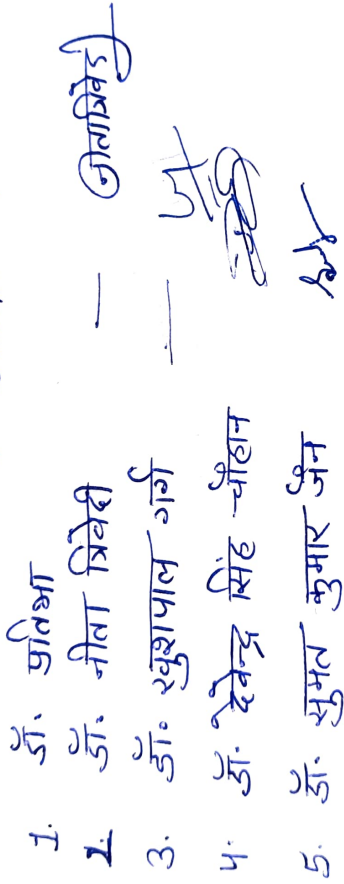 1. डॉ. प्रतिभा
2. डॉ. नीता त्रिवेदी — नीता त्रिवेदी
3. डॉ. खुशपाल गर्ग —
4. डॉ. देवेन्द्र सिंह चौहान
5. डॉ. सुमत कुमार जैन